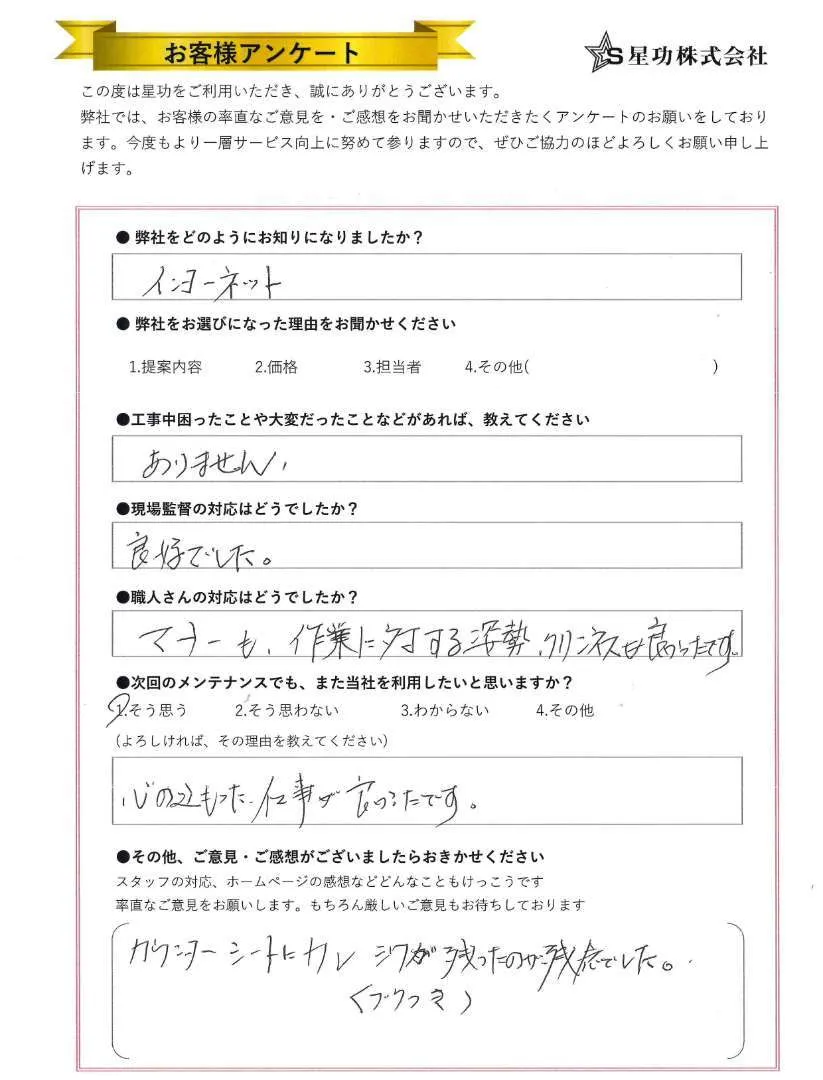 お客様アンケート
S星功株式会社
この度は星功をご利用いただき、誠にありがとうございます。
弊社では、お客様の率直なご意見を・ご感想をお聞かせいただきたくアンケートのお願いをしており
ます。今度もより一層サービス向上に努めて参りますので、ぜひご協力のほどよろしくお願い申し上
げます。
● 弊社をどのようにお知りになりましたか？
インターネット
● 弊社をお選びになった理由をお聞かせください
1.提案内容 2.価格 3.担当者 4.その他( )
●工事中困ったことや大変だったことなどがあれば、教えてください
ありません、
●現場監督の対応はどうでしたか？
良好でした。
●職人さんの対応はどうでしたか？
マナーも、作業に対する姿勢、クリンネスも良かったです。
●次回のメンテナンスでも、また当社を利用したいと思いますか？
1.そう思う 2.そう思わない 3.わからない 4.その他
(よろしければ、その理由を教えてください)
心の込もった仕事が良かったです。
●その他、ご意見・ご感想がございましたらおきかせください
スタッフの対応、ホームページの感想などどんなこともけっこうです
率直なご意見をお願いします。もちろん厳しいご意見もお待ちしております
カウンターシートに シワが残ったのが残念でした。